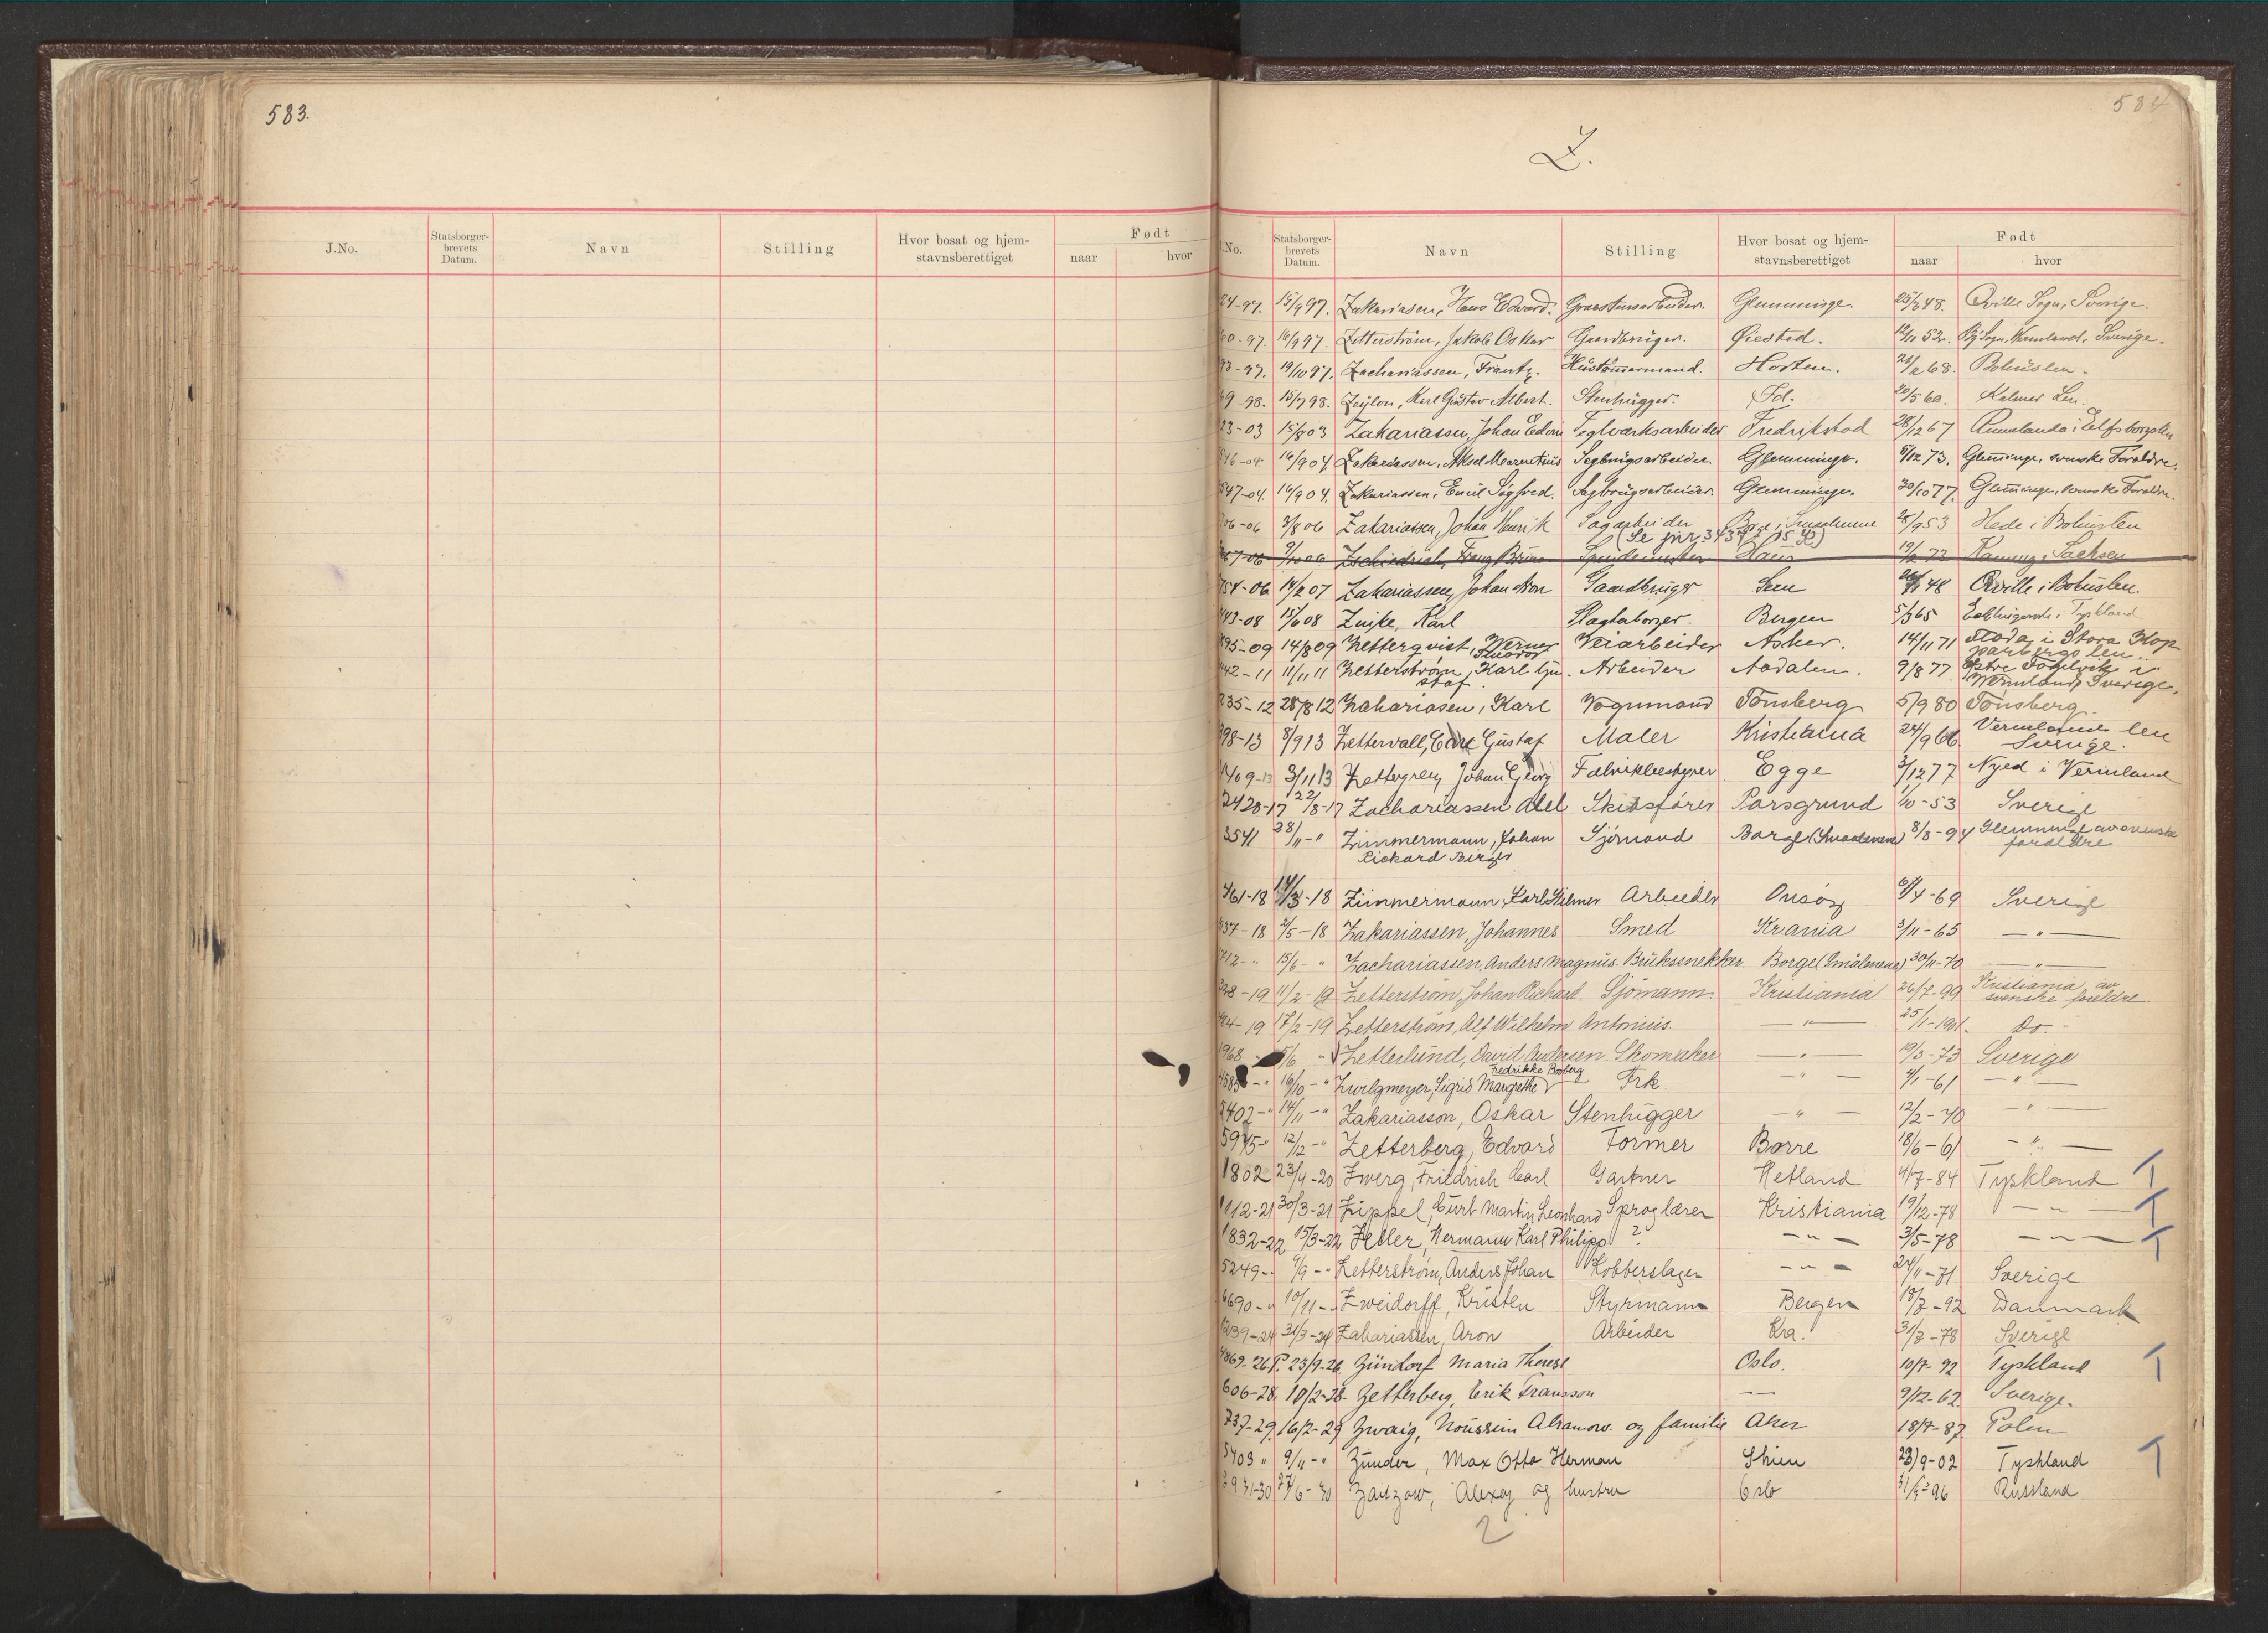 583.
J.No.
Statsborger-
brevets
Datum.
Navn
Stilling
Hvor bosat og hjem-
stavnsberettiget
Født
naar
hvor
584
Z.
No.
Statsborger-
brevets
Datum.
Navn
Stilling
Hvor bosat og hjem-
stavnsberettiget
Født
naar
hvor
24-97. 15/9 97. Zakariasen, Hans Edvard. Glemminge. 25/3 48. Qville Sogn, Sverige.
60-97. 16/9 97. Zetterström, Jakob Oskar Gaardbruger. Øiestad. By Sogn, Vermland, Sverige.
19/10 97. Zachariassen, Frantz. Hustömmermand. Horten. 68. Bohuslen.
69-98. 15/7 98. Zeylon, Karl Gustav Albert. Stenhugger. Fd. 20/5 60. Kalmar Len.
23-03 15/8 03 Zakariassen, Johan Edvin Teglværksarbeider Fredrikstad 28/12 67 i Elfsborgslen
16/9 04. Zakariassen, Aksel Sagbrugsarbeider. Glemminge. 5/12 73. Glemminge, svenske Forældre.
547-04. 16/9 04. Zakariassen, Emil Sigfred. Sagbrugsarbeider. Glemminge. 30/10 77. Glemminge, svenske Forældre.
06-06 3/8 06 Zakariassen, Johan Henrik Sagarbeider Borge i Smaalenene 28/9 53 Hede i Bohuslen
(Se jnr. 3434/15 )
67-06 9/10 06 Zschiedrich, Franz Bruno Spindemester Haus 19/2 72 Kamenz, Sachsen
754-06 14/2 07 Zakariassen, Johan Aron Gaardbruger Sem 48 Qville i Bohuslen.
443-08 15/6 08 Zuske, Karl Slagteborger. Bergen 5/3 65 i Tyskland
895-09 14/8 09 Zetterqvist, Werner Veiarbeider Asker. 14/11 71 Stoda i Stora Kop-
Theodor parbergs len.
442-11 11/11 11 Zetterström, Karl Gu- Arbeider Aadalen. 9/8 77 Østre Fogelvik i
staf. Wermland, Sverige.
235-12 28/8 12 Zakariasen, Karl Vognmand Tönsberg 5/9 80 Tönsberg.
898-13 8/9 13 Zettervall, Carl Gustaf Maler Kristiania 24/9 66. Vermlands len
Sverige.
1409-13 3/11 13 Zettergren, Johan Georg Fabrikbestyrer Egge 3/12 77 Nyed i Vermland
2428-17 22/8-17 Zachariassen Abel Skibsfører Porsgrund 1/10-53 Sverige
3541 28/11-" Zimmermann, Johan Sjömand Borge (Smaalenene) 8/8-94 Glemminge av svenske
Rickard Birger forældre
461-18 14/3-18 Zimmermann, Karl Hilmer Arbeider Onsøy 6/4-69 Sverige
937-18 2/5-18 Zakariassen, Johannes Smed Krania 3/11-65 — " —
712-" 15/6-" Zachariassen, Anders Magnus. Bruksnekker. Borge (Smålenene) 30/11-70 — " —
328-19 11/2-19 Zetterström, Johan Richard. Sjömann. Kristiania 26/7-99 Kristiania, av
svenske foreldre.
484-19 17/2-19 Zetterström, Alf Wilhelm Antonius. — " — 25/1-1901. Do.
1968 5/6 -" Zetterlund, David Andersen. Skomaker — " — 19/3-73 Sverige
Fredrikke Boberg
458 -" 16/10-" Zwilgmeyer, Sigrid Margrethe Frk. — " — 4/1-61 — " —
5402-" 14/11-" Zakariasson, Oskar Stenhugger — " — 12/2-70 — " —
5975-" 12/12-" Zetterberg, Edvard Former Borre 18/6-61 — " —
1802 23/4-20 Zwerg, Friedrich Carl Gartner Hetland 4/7-84 Tyskland T
1112-21 30/3-21 Zippel, Curt Martin Leonhard Sproglærer Kristiania 19/12-78 — " — T
1832-22 15/3-22 Zeller, Hermann Karl Philipp ? — " — 3/5-78 — " — T
5249-" 9/9-" Zetterström, Anders Johan Kobberslager — " — 24/11-71 Sverige
6690-" 10/11-" Zweidorff, Kristen Styrmann Bergen 18/7-92 Danmark
1239-24 31/3-24 Zakariassen, Aron Arbeider Kra. 31/7-78 Sverige
4869-26 P. 23/9-26 Zündorf Maria Therese Oslo. 10/7-92 Tyskland T
606-28. 10/2-28. Zetterberg, Erik Fransson — 9/12-62 Sverige.
737-29. 16/2-29 Zwaig, Noussim Abramow. og familie Aker 18/7-87 Polen
5403 " 9/11-" Zünder, Max Otto Herman Skien 23/9-02 Tyskland T
2931-30 27/6-30 Zaitzow, Alexey og hustru Oslo 31/3-96 Russland
2